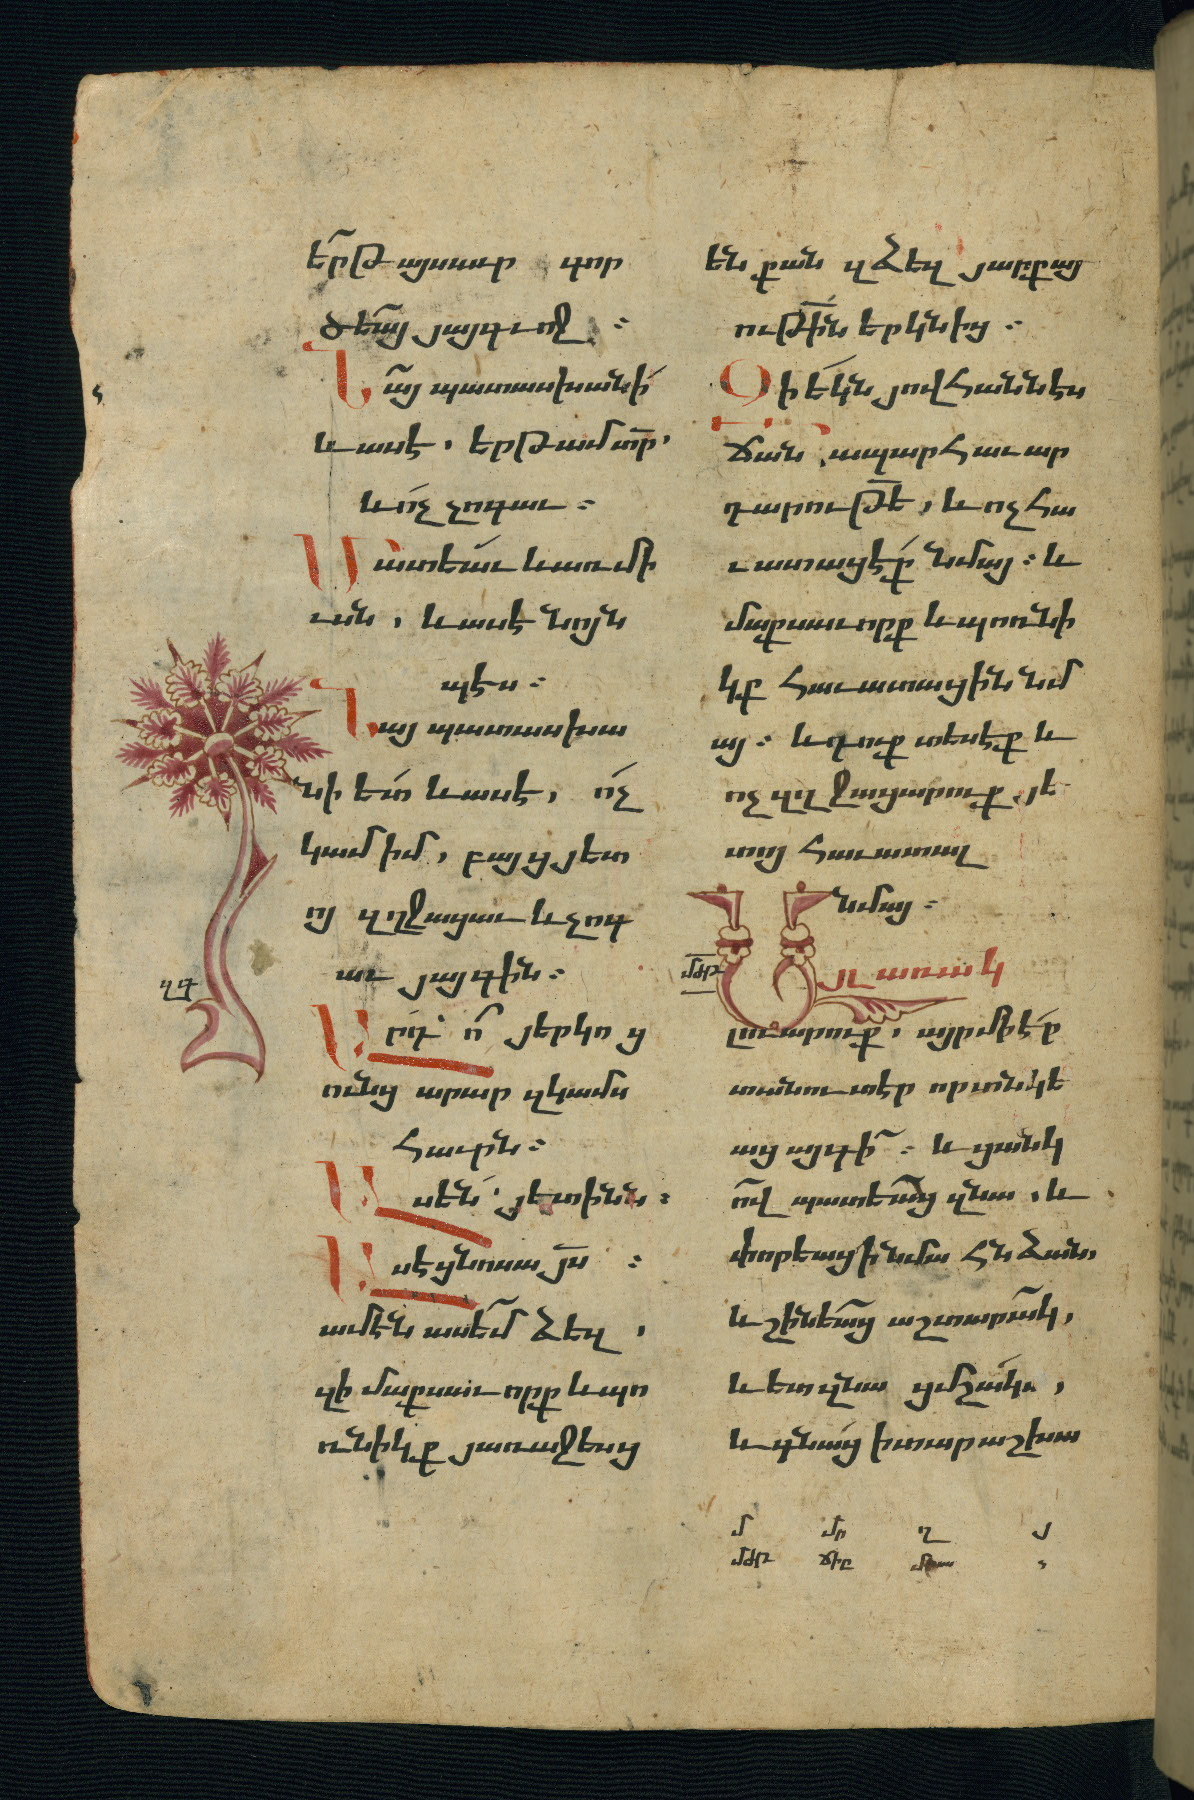 երթ այսաւր գոր
ծեա՛յ յայգւոջ ։
Նա՛յ պատասխանի՛
և ասէ . երթամ տր՟ .
և ո՛չ չոգաւ ։
Մատեաւ և առ մի
ւսն , և ասէ նոյն
պէս ։
Նայ պատասխա
նի ետ և ասէ , ո՛չ
կամիմ , բայց յետ
ոյ զղջացաւ և չոգ
աւ յայգին ։
ՂԳ
Արդ՝ ո՞ յերկոց
ունց արար զկամս
հաւրն ։
Ասեն՝ յետինն ։
Ասէ ցնոսա յս՟ ։
ամէն ասեմ ձեզ ,
զի մաքսաւորք և պո
ռնիկք յառաջեսց
են քան զձեզ յարքայ
ութի՟ն երկնից ։
Զի եկն յովհաննէս
ճանապարհաւ ար
դարութե՟ , և ոչ հա
ւատացէք նմայ ։ և
մաքսաւորք և պոռնի
կք հաւատացին նմ
այ ։ և դուք տեսէք և
ոչ զղջացարուք յե
տոյ հաւատալ
նմայ ։
ՄԺԹ
Այլ առակ
լուարուք , այր մի է՛ր
տանուտէր որ տնկե
աց այգի՟ ։ և ցանկ
ո՟վ պատեաց զնա , և
փորեաց ի նմա հնձան ,
և շինեաց աշտարակ ,
և ետ զնա ցմշակս ,
և գնաց ի տարաշխա